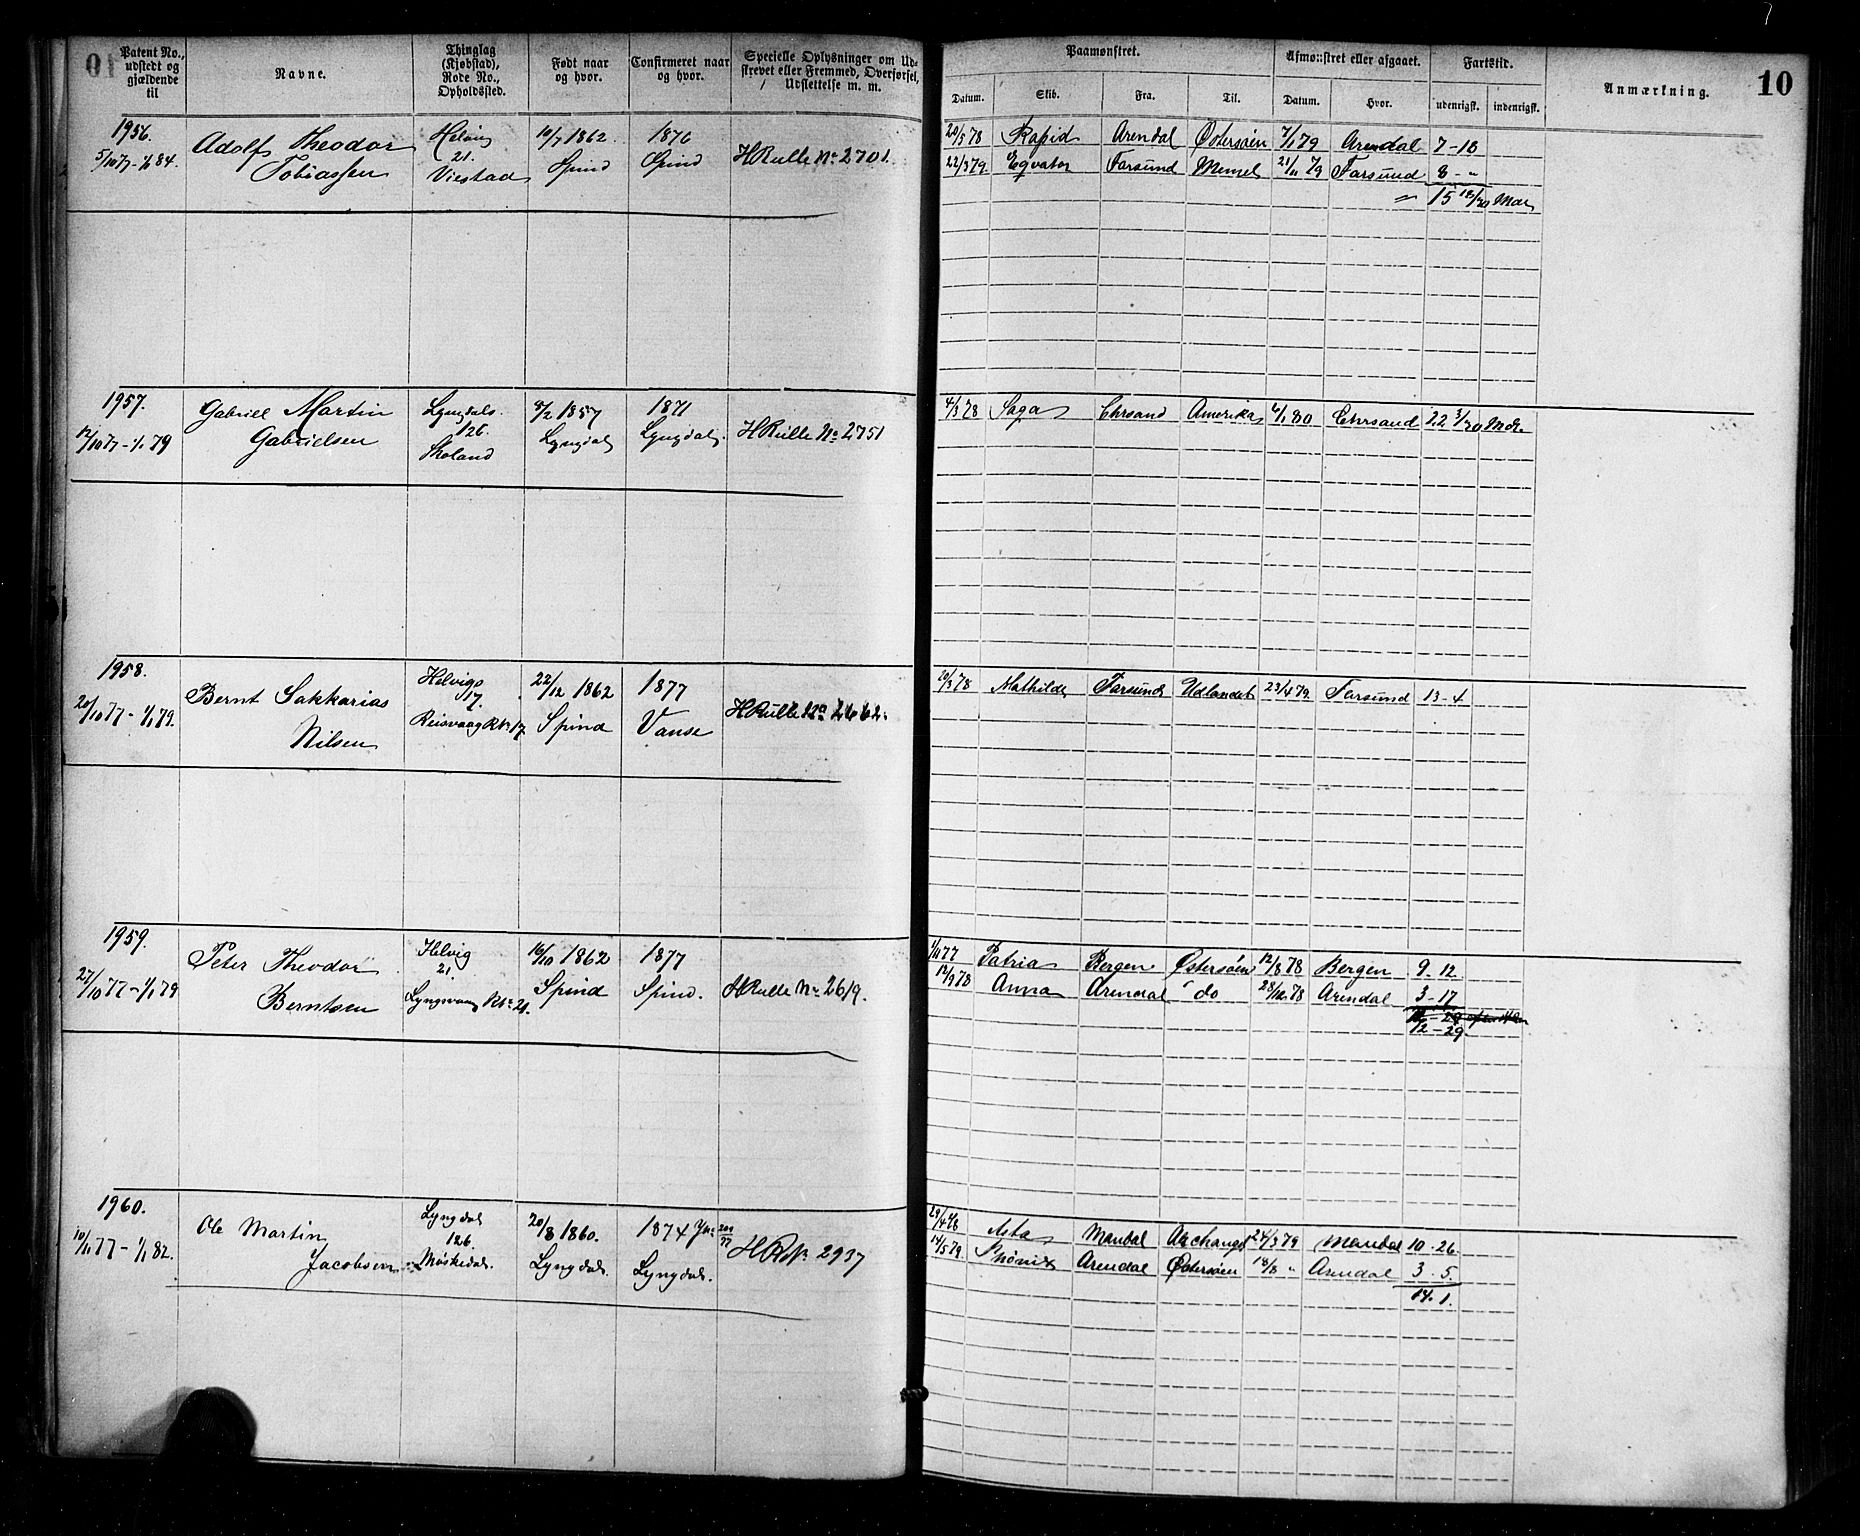 10
Patent No., udstedt og gjældende til
Navne.
Thinglag (Kjøbstad), Rode No., Opholdssted.
Født naar og hvor.
Confirmeret naar og hvor.
Specielle Oplysninger om Udstrevet eller Fremmed, Overførsel, Udslettelse m. m.
Paamønstret.
Datum.
Skib.
Fra.
Til.
Afmønstret eller afgaaet.
Datum.
Hvor.
Fartstid.
udenrigsk.
indenrigsk.
Anmærkning.
10
1956.
5/10 77 - 1/1 84
Adolf Theodor
Tobiassen
Helvig
21.
Viestad
10/7 1862
Spind
1876
Spind
HRulle No 2701.
20/5 78 Rapid Arendal Østersøen 7/1 79 Arendal 7-18
22/3 79. Eqvator Farsund Memel 21/11 79 Farsund 8 - "
" 15 18/30 Mdr
1957.
12/10 77 - 1/1 79
Gabriel Martin
Gabrielsen
Lyngdals.
126.
Skoland
8/2 1857
Lyngdal
1871
Lyngdal.
HRulle No 2751
4/3 78 Saga Chrsand Amerika 6/1 80 Chrsand 22 3/30 Mdr.
1958.
20/10 77 - 1/1 79.
Bernt Sakkarias
Nilsen
Helvigs
17.
Reisvaag Rk. 17
22/12 1862
Spind
1877
Vanse
HRulle No 2662.
20/3 78 Mathilde Farsund Udlandet 23/4 79. Farsund 13-4
1959.
27/10 77 - 1/1 79
Peter Theodor
Berntsen
Helvig
21.
Lyngsvaag Rk. 21.
16/10 1862
Spind
1877
Spind.
HRulle No 2619.
1/11 77 Patria Bergen Østersøen 12/8 78 Bergen 9-12
12/9 78 Anna Arendal do 28/12 78 Arendal 3-17
12-29
1960.
10/11 77 - 1/1 82.
Ole Martin
Jacobsen
Lyngdal
126.
Møskedal.
20/8 1860.
Lyngdal.
1874
Lyngdal.
2937
29/4 78 Asta Mandal Archangel 24/3 79 Mandal 10-26
14/5 79. Phønix Arendal Østersøen 18/8 " Arendal 3-5
14.1.